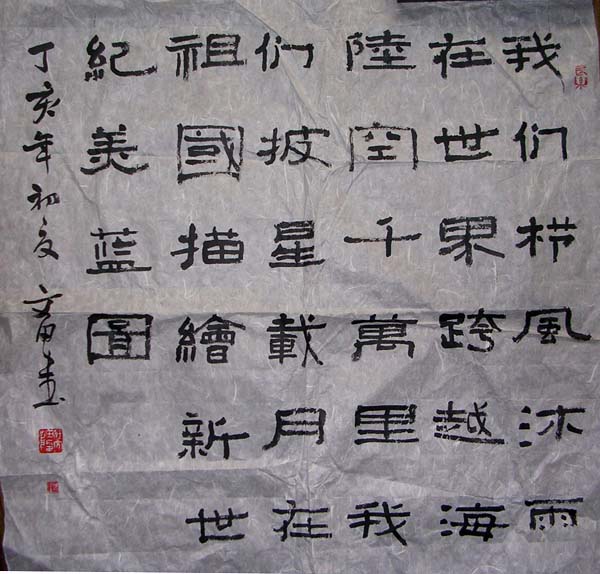 我们栉風沐雨
在世界跨越海
陸空千萬里我
们披星載月在
祖國描繪新世
紀美蓝圖
丁亥年初夏